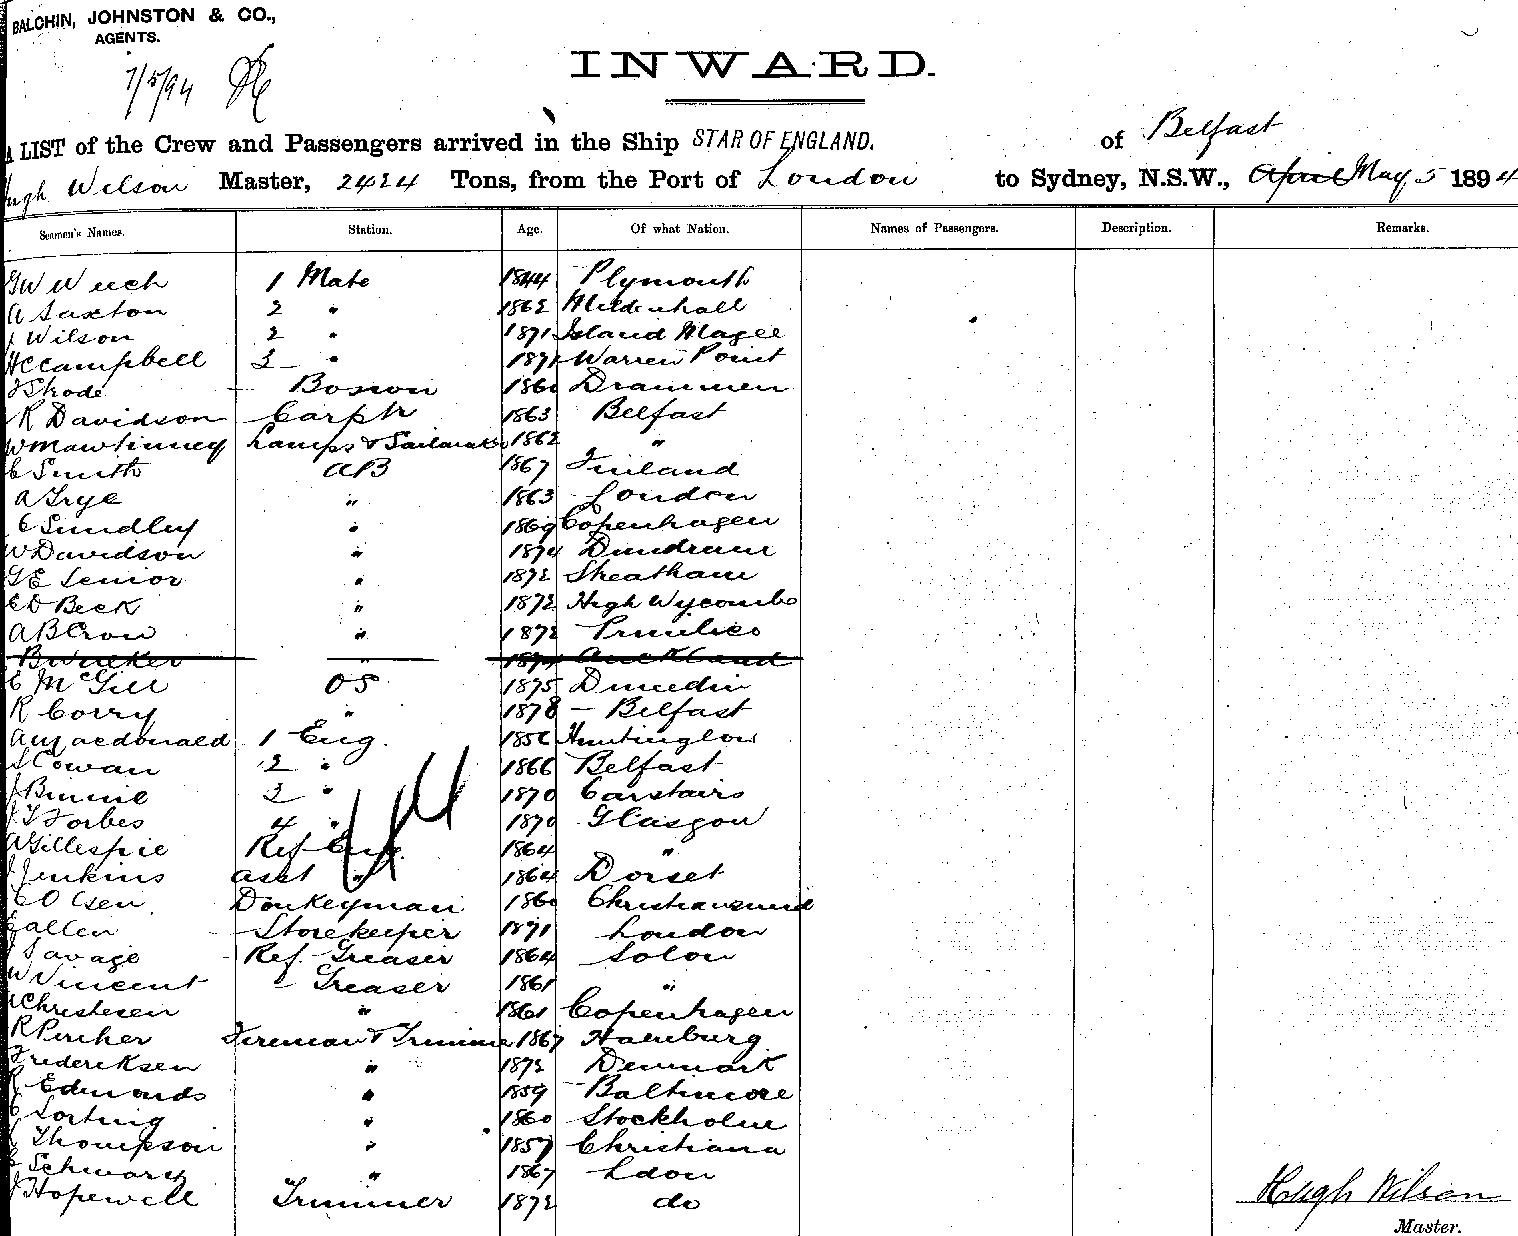 BALCHIN, JOHNSTON & CO.,
AGENTS.
7/5/94
INWARD.
A LIST of the Crew and Passengers arrived in the Ship STAR OF ENGLAND. of Belfast
Hugh Wilson Master, 2424 Tons, from the Port of London to Sydney, N.S.W., April May 5 1894
Seamen's Names. Station. Age. Of what Nation. Names of Passengers. Description. Remarks.
1 Mate 1844 Plymouth
A Saxton 2 " 1862 Mildenhall
J Wilson 2 " 1871 Island Magee
HC Campbell 3 " 1871 Warren Point
Bosson 1860 Drammen
R Davidson Carptr 1863 Belfast
W Mawhinney Lamps & Sailmaker 1862 "
C Smith AB 1867 Finland
A Frye " 1863 London
C Sundley " 1869 Copenhagen
W Davidson " 1874 Dundrum
GE Senior " 1872
CD Beck " 1872 High Wycombe
AB Crow " 1872 Pimlico
" 1874 Auckland
C McGill OS 1875 Dunedin
R Corry " 1878 - Belfast
A Macdonald 1 Eng. 1856
S Cowan 2 " 1866 Belfast
J Binnie 3 " 1870 Carstairs
J T Forbes 4 " 1870 Glasgow
A Gillespie Ref Eng. 1864 "
J Jenkins Asst " 1864 Dorset
C Olsen Donkeyman 1860 Christiansund
E Allen Storekeeper 1871 London
J Savage Ref Greaser 1864 Lolon
W Vincent - Greaser 1861 "
A Christesen " 1861 Copenhagen
R Percher Fireman & Trimmer 1867 Hamburg
Frederiksen " 1872 Denmark
R Edmonds " 1859 Baltimore
C Sorting " 1860 Stockholm
J Thompson " 1857 Christiana
E Schwarz " 1867 Ldon
J Hopewell Trimmer 1872 do
Hugh Wilson
Master.